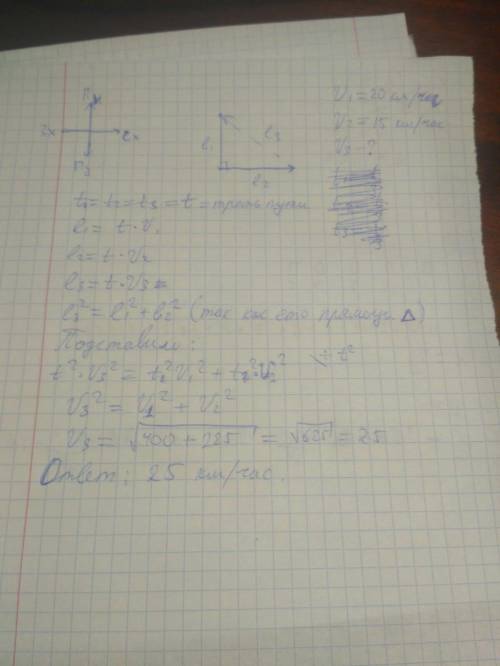 V₁ = 20 км/час
V₂ = 15 км/час
V₃ - ?
l₁
l₃
l₂
t₁ = t₂ = t₃ = t = треть пути
l₁ = t · V₁
l₂ = t · V₂
l₃ = t · V₃
l₃² = l₁² + l₂² (так как это прямоуг △)
Подставили:
t² · V₃² = t² V₁² + t² · V₂² \ ÷ t²
V₃² = V₁² + V₂²
V₃ = √400 + 225 = √625 = 25
Ответ: 25 км/час.